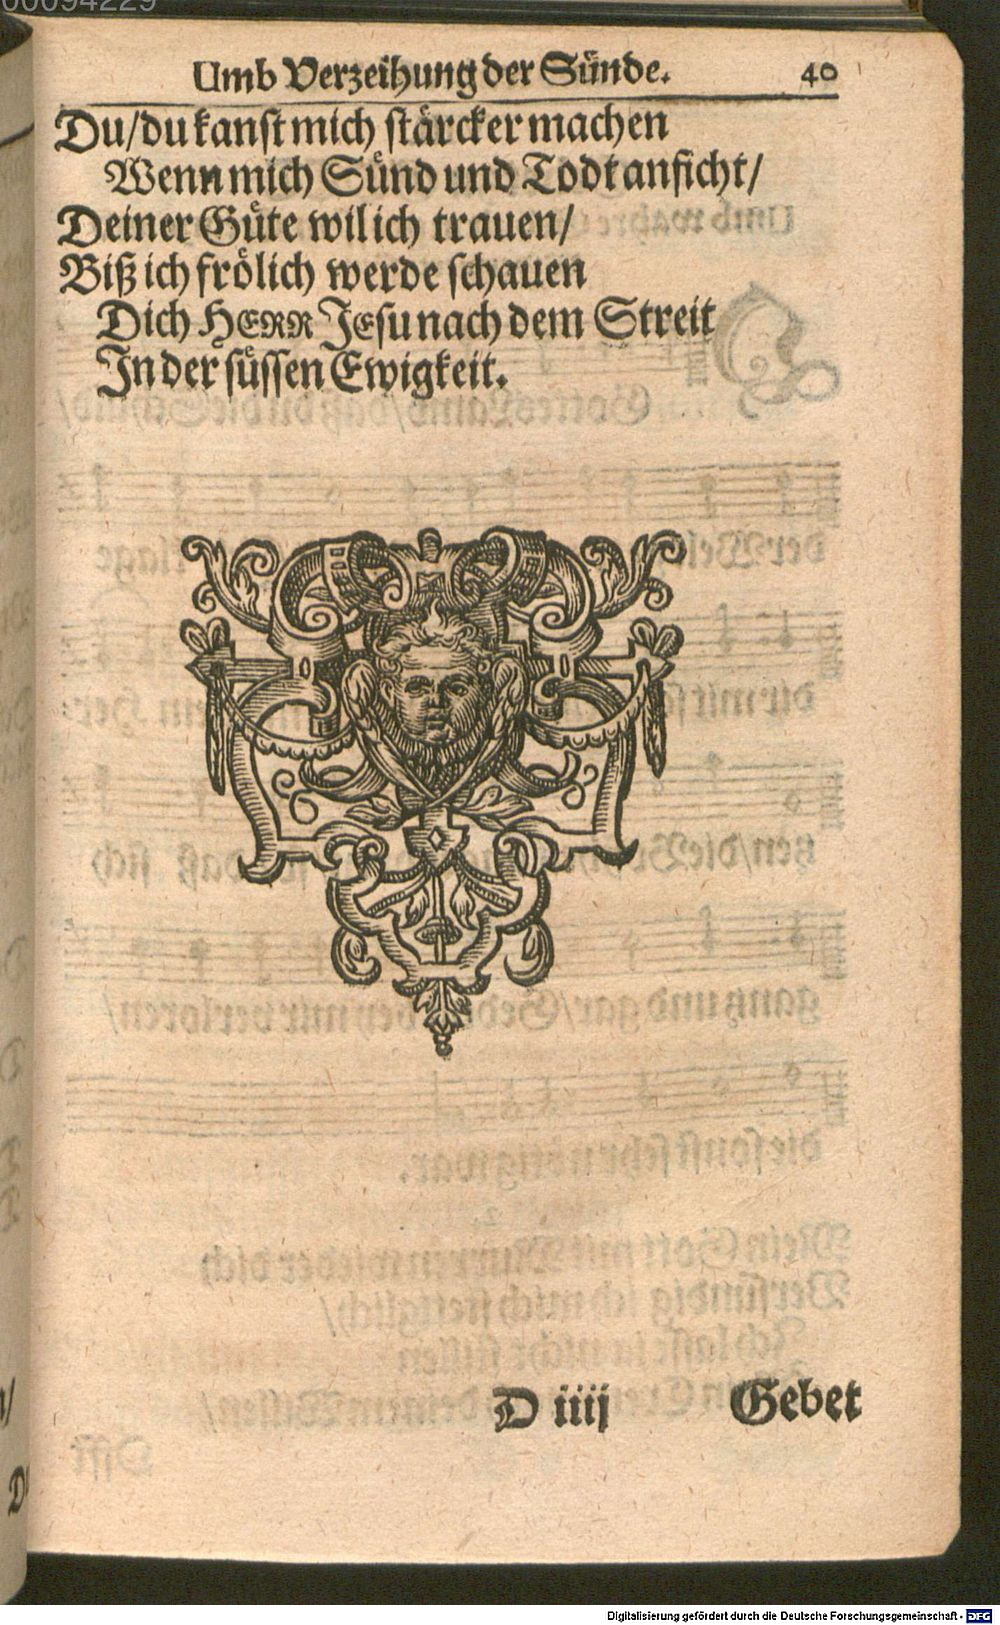 00094229
Umb Verzeihung der Sünde. 40
Du/du kanst mich stärcker machen
Wenn mich Sünd und Todt anficht/
Deiner Güte wil ich trauen/
Biß ich frölich werde schauen
Dich HERR JEsu nach dem Streit
In der süssen Ewigkeit.
D iiij Gebet
Digitalisierung gefördert durch die Deutsche Forschungsgemeinschaft - DFG